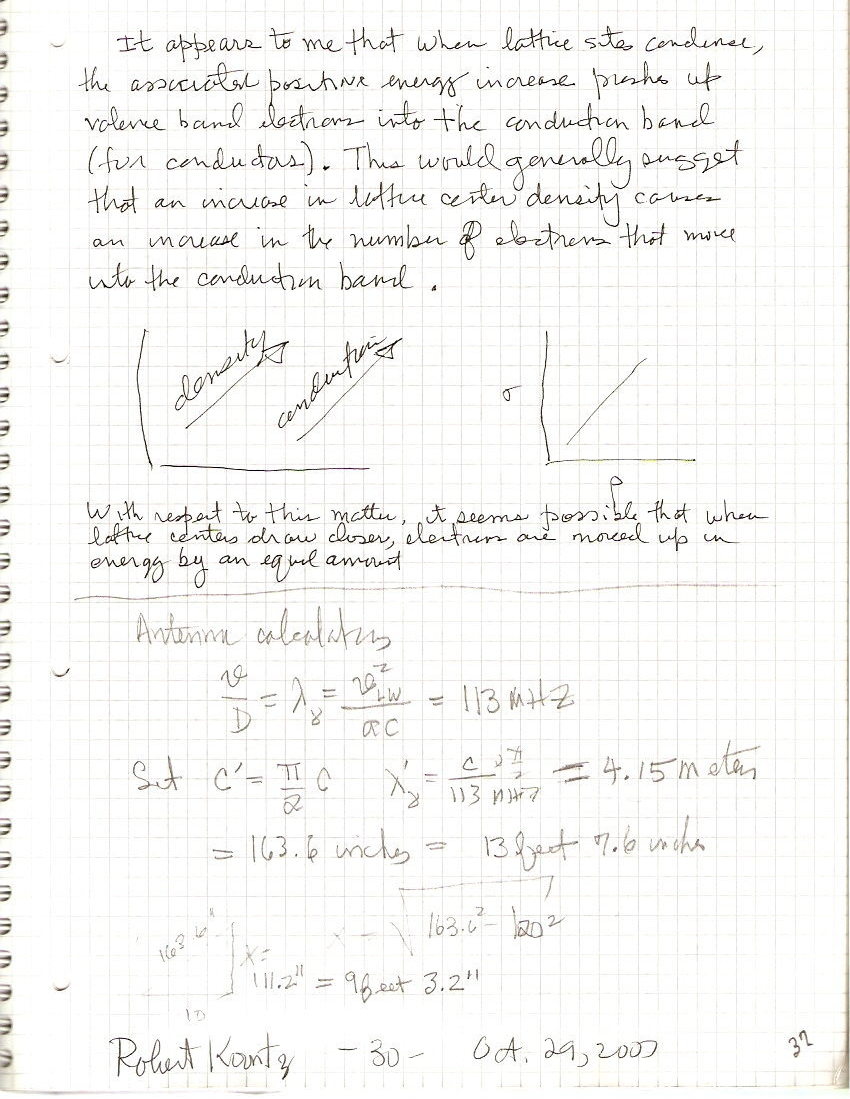 It appears to me that when lattice sites condense,
the associated positive energy increase pushes up
valence band electrons into the conduction band
(for conductors). This would generally suggest
that an increase in lattice center density causes
an increase in the number of electrons that move
into the conduction band.
density
conduction
σ
ρ
With respect to this matter, it seems possible that when
lattice centers draw closer, electrons are moved up in
energy by an equal amount
Antenna calculations
v/D = λγ = v²LW/αC = 113 MHZ
Set C' = π/2 C λ'γ = = 4.15 meters
113 MHZ
= 163.6 inches = 13 feet 7.6 inches
163.6" X = √163.6² - 120²
X =
111.2" = 9 feet 3.2"
10
Robert Koontz - 30 - Oct. 29, 2007